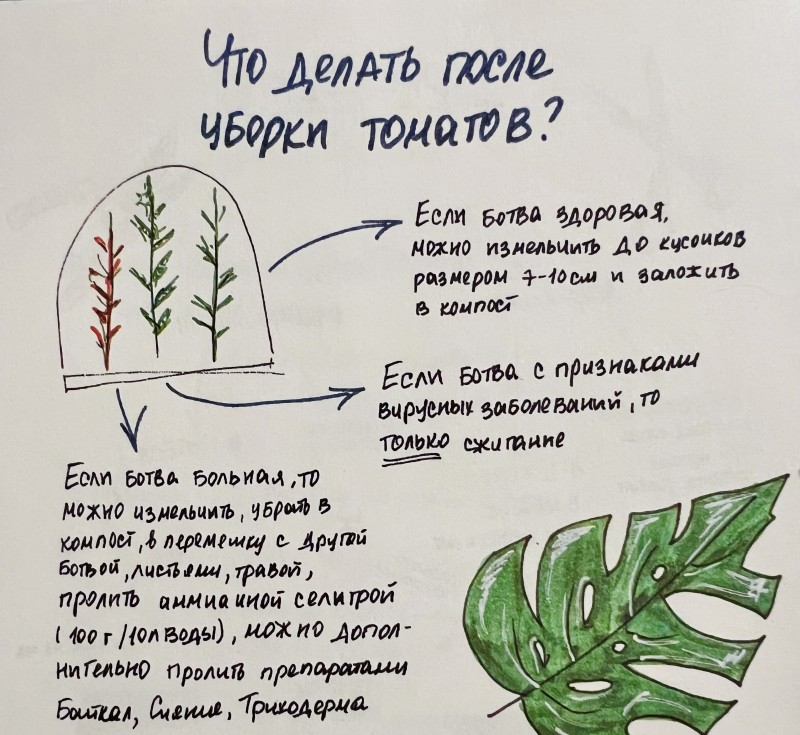 Что делать после
уборки томатов?
Если ботва здоровая,
можно измельчить до кусочков
размером 7-10см и заложить
в компост
Если ботва с признаками
вирусных заболеваний, то
только сжигание
Если ботва больная, то
можно измельчить, убрать в
компост, в перемешку с другой
ботвой, листьями, травой,
пролить аммиачной селитрой
(100г/10л воды), можно допол-
нительно пролить препаратами
Байкал, Сияние, Триходерма